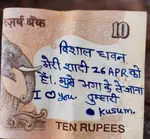 रिज़र्व बैंक
10
विशाल धवन
मेरी शादी 26 APR को
है। मुझे भगा के ले जाना
I ♡ you तुम्हारी
kusum.
TEN RUPEES